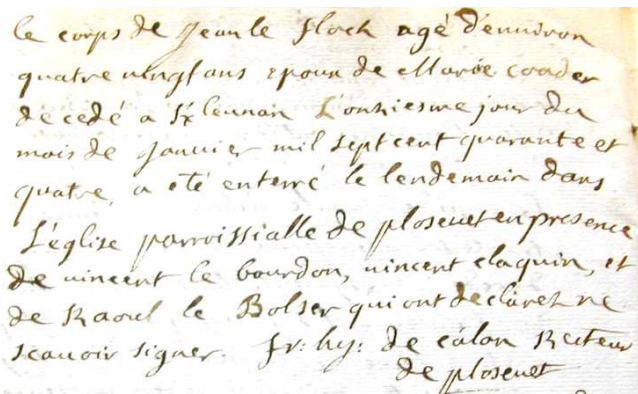 le corps de Jean le floch agé d'environ
quatre vingt ans epoux de Marie coader
decedé a lennan L'onziesme jour du
mois de janvier mil sept cent quarante et
quatre, a eté enterré le lendemain dans
L'église parroissialle de plosevet en presence
de vincent le bourdon, vincent claquin, et
de Raoul le Bolser qui ont declarez ne
scavoir signer. fr: hy: de câlon Recteur
de plosevet